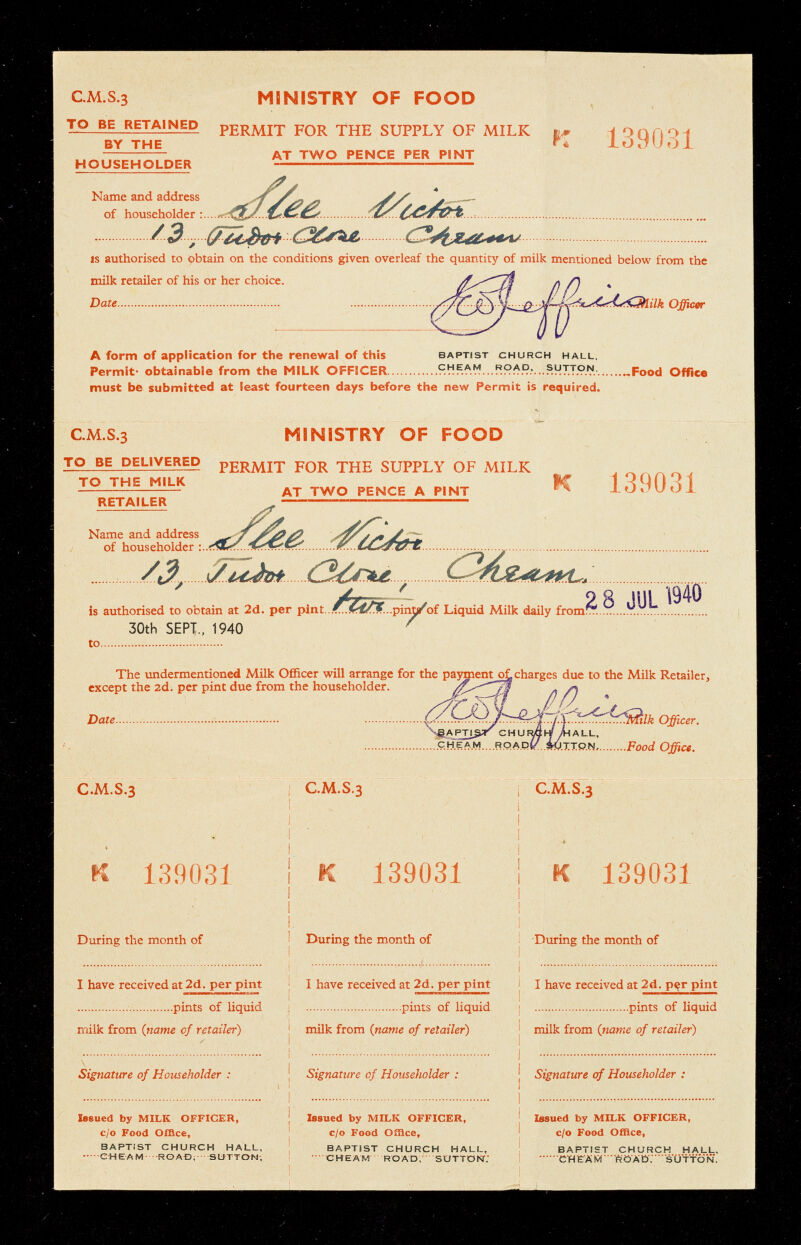 C.M.S.3
MINISTRY OF FOOD
TO BE RETAINED
BY THE
HOUSEHOLDER
PERMIT FOR THE SUPPLY OF MILK
AT TWO PENCE PER PINT
K 139031
Name and address
of householder : Slee Victor
13, Tudor Close Cheam
is authorised to obtain on the conditions given overleaf the quantity of milk mentioned below from the
milk retailer of his or her choice.
Date Jeffries Milk Officer
A form of application for the renewal of this BAPTIST CHURCH HALL,
Permit· obtainable from the MILK OFFICER CHEAM ROAD. SUTTON. Food Office
must be submitted at least fourteen days before the new Permit is required.
C.M.S.3
MINISTRY OF FOOD
TO BE DELIVERED
TO THE MILK
RETAILER
PERMIT FOR THE SUPPLY OF MILK
AT TWO PENCE A PINT
K 139031
Name and address
of householder : Slee Victor
13, Tudor Close, Cheam.
is authorised to obtain at 2d. per pint two pint/of Liquid Milk daily from 28 JUL 1940
30th SEPT., 1940
to
The undermentioned Milk Officer will arrange for the payment of charges due to the Milk Retailer,
except the 2d. per pint due from the householder.
Date Jeffries Milk Officer.
BAPTIST CHURCH HALL,
CHEAM ROAD, SUTTON. Food Office.
C.M.S.3
K 139031
During the month of
I have received at 2d. per pint
pints of liquid
milk from (name of retailer)
Signature of Householder :
Issued by MILK OFFICER,
c/o Food Office,
BAPTIST CHURCH HALL,
CHEAM ROAD, SUTTON,
C.M.S.3
K 139031
During the month of
I have received at 2d. per pint
pints of liquid
milk from (name of retailer)
Signature of Householder :
Issued by MILK OFFICER,
c/o Food Office,
BAPTIST CHURCH HALL,
CHEAM ROAD, SUTTON.
C.M.S.3
K 139031
During the month of
I have received at 2d. per pint
pints of liquid
milk from (name of retailer)
Signature of Householder :
Issued by MILK OFFICER,
c/o Food Office,
BAPTIST CHURCH HALL,
CHEAM ROAD, SUTTON.